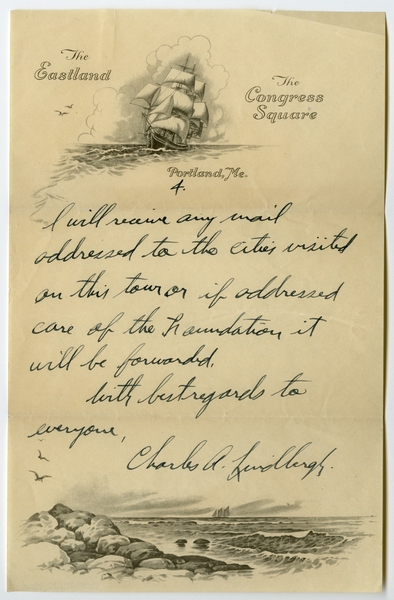 The
Eastland
The
Congress
Square
Portland, Me.
4.
I will receive any mail
addressed to the cities visited
on this tour or if addressed
care of the Foundation it
will be forwarded.
With best regards to
everyone,
Charles A. Lindbergh.